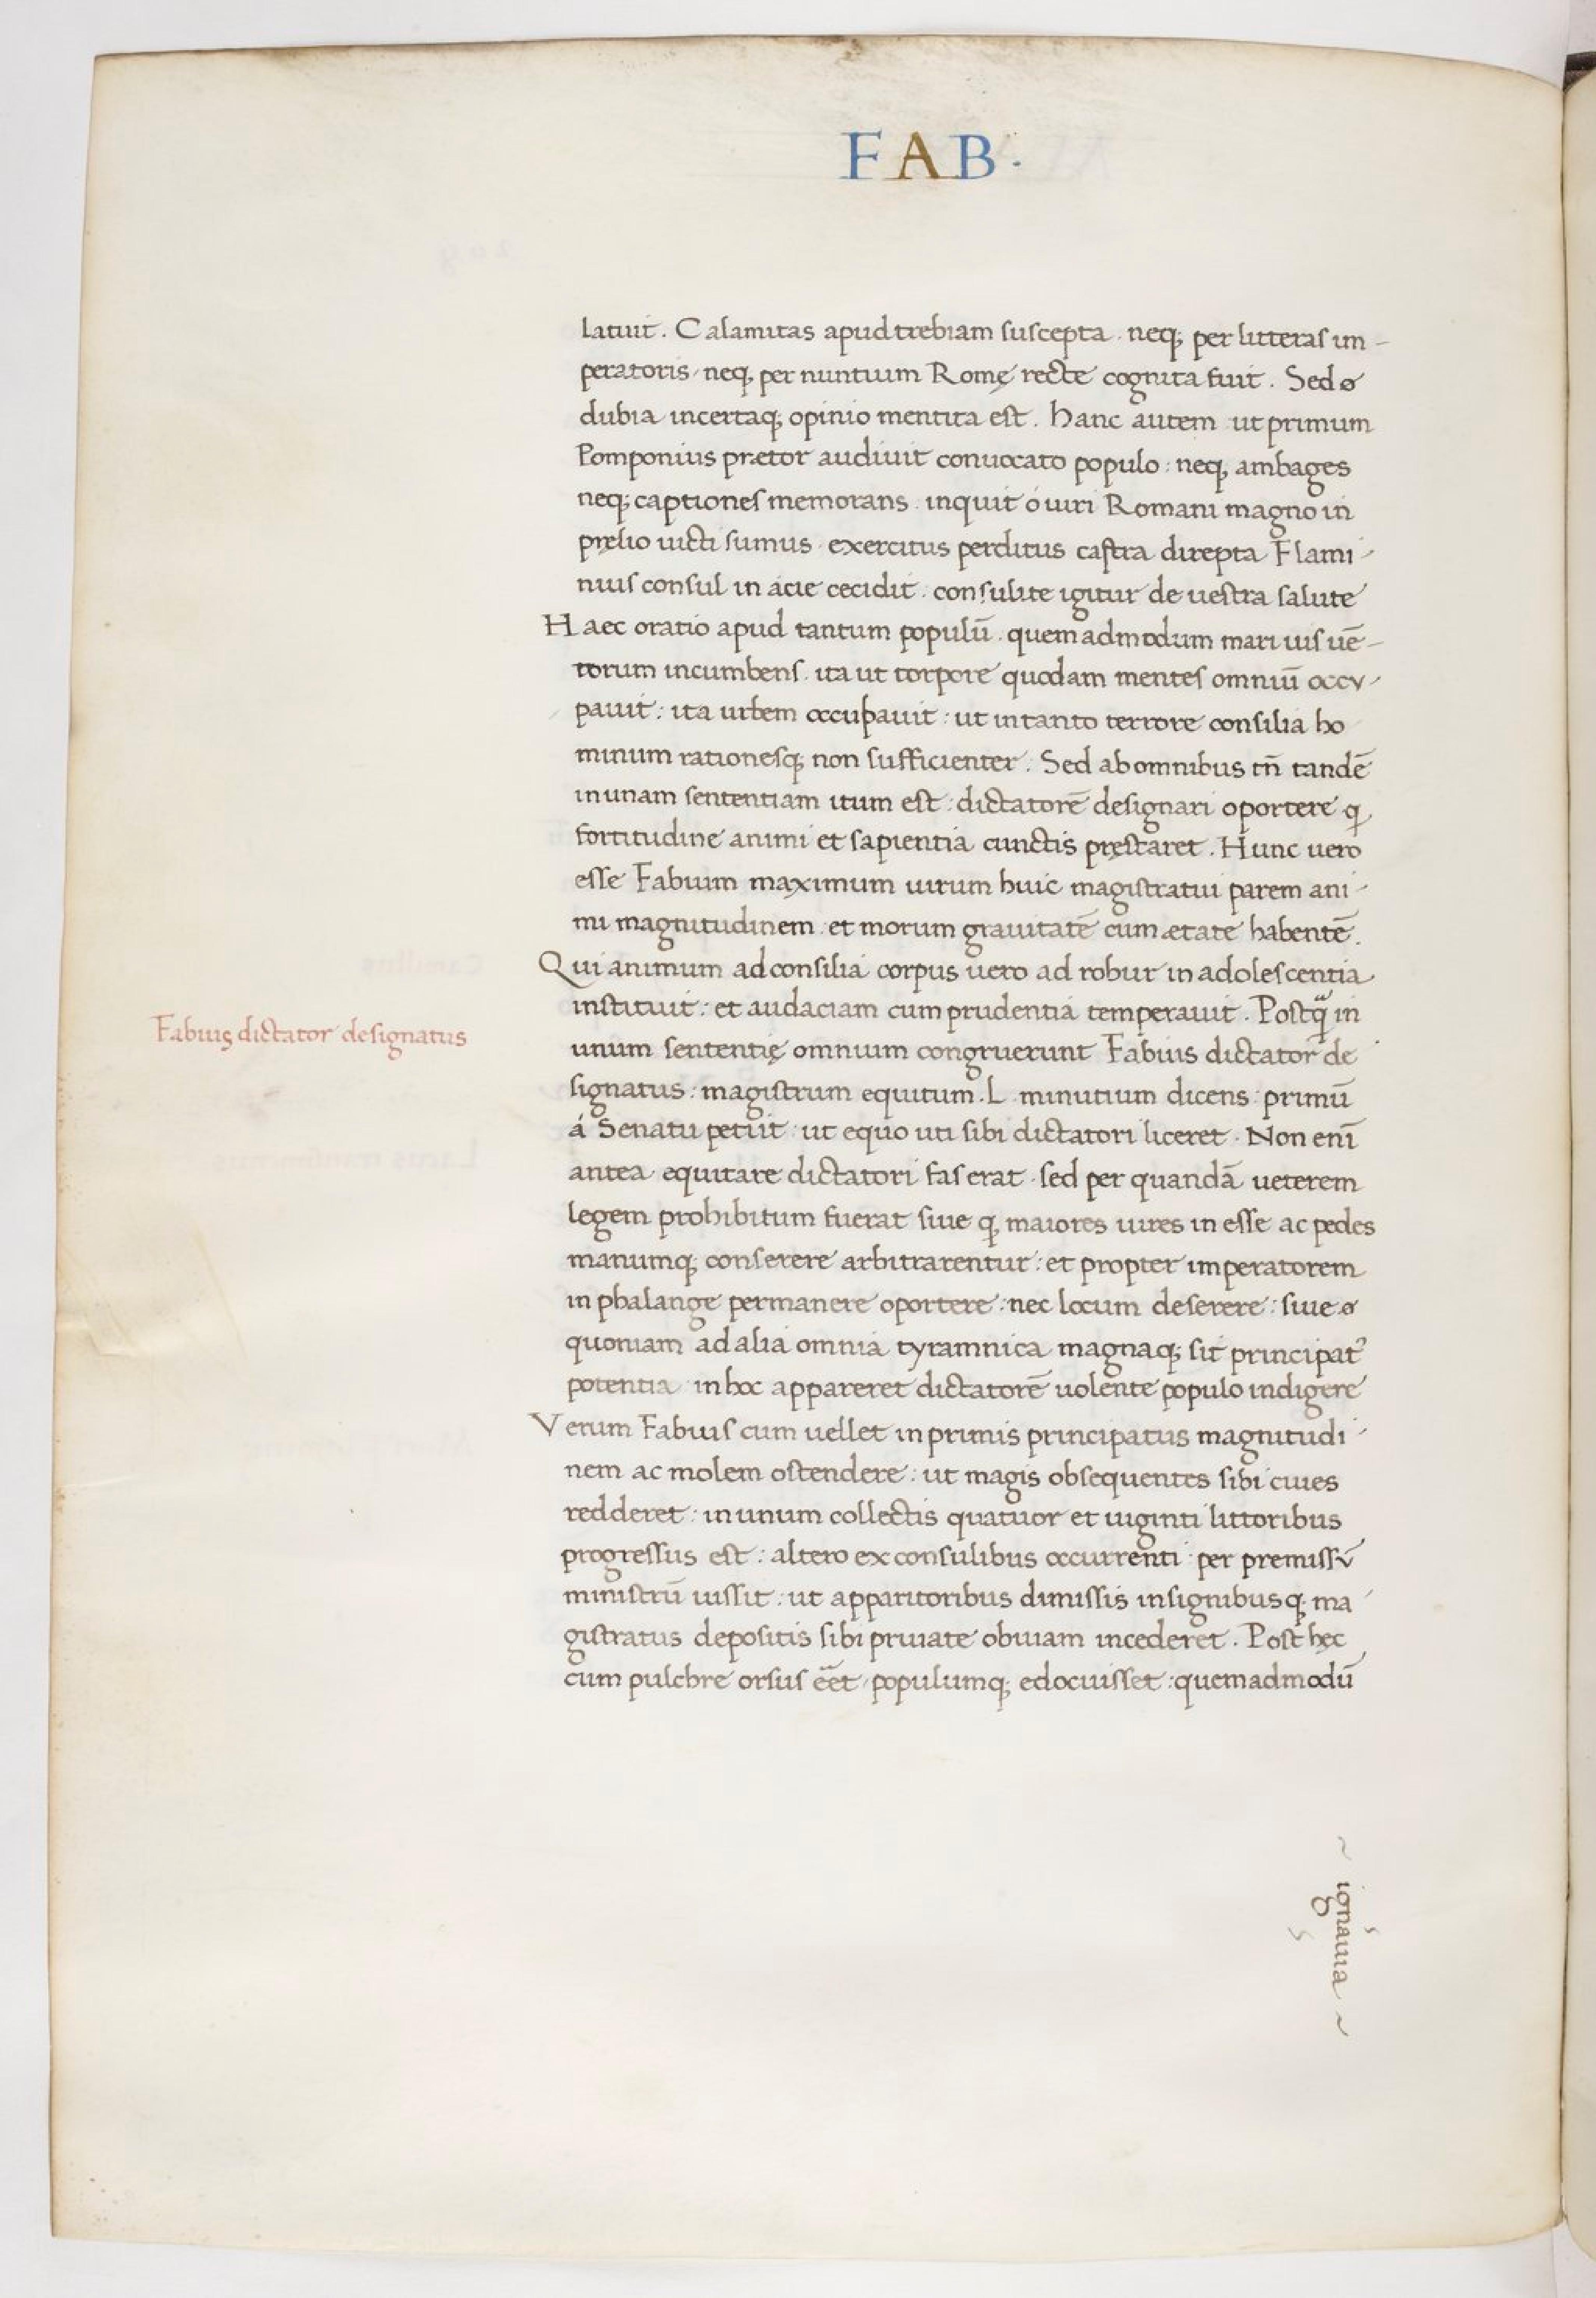 FAB.
latuit. Calamitas apud trebiam suscepta. neq; per litteras im-
peratoris, neq; per nuntium Romę recte cognita fuit. Sed ø
dubia incertaq; opinio mentita est. hanc autem ut primum
Pomponius prætor audiuit conuocato populo: neq; ambages
neq; captiones memorans. inquit ó uiri Romani magno in
pręlio uicti sumus. exercitus perditus castra direpta Flami-
nius consul in acie cecidit. consulite igitur de uestra salute
Haec oratio apud tantum populū. quemadmodum mari uis uē-
torum incumbens. ita ut torpore quodam mentes omniū occu-
pauit: ita urbem occupauit: ut in tanto terrore consilia ho
minum rationesq; non sufficienter. Sed ab omnibus tñ tandē
in unam sententiam itum est: dictatorē designari oportere q
fortitudine animi et sapientia cunctis pręstaret. Hunc uero
esse Fabium maximum uirum huic magistratui parem ani-
mi magnitudinem. et morum grauitatē cum ætate habentē.
Qui animum ad consilia corpus uero ad robur in adolescentia
instituit: et audaciam cum prudentia temperauit. Postq̃ in
unum sententię omnium congruerunt Fabius dictator de
Fabius dictator designatus
signatus: magistrum equitum. L. minutium dicens: primū
á Senatu petiit: ut equo uti sibi dictatori liceret. Non enī
antea equitare dictatori fas erat. sed per quandā ueterem
legem prohibitum fuerat siue q maiores uires in esse ac pedes
manumq; conserere arbitrarentur: et propter imperatorem
in phalange permanere oportere: nec locum deserere: siue ø
quoniam ad alia omnia tyramnica magnaq; sit principat9
potentia in hoc appareret dictatorē uolente populo indigere
Verum Fabius cum uellet in primis principatus magnitudi-
nem ac molem ostendere: ut magis obsequentes sibi ciues
redderet: in unum collectis quatuor et uiginti littoribus
progressus est: altero ex consulibus occurrenti: per premissū
ministrū iussit: ut apparitoribus dimissis insignibusq; ma-
gistratus depositis sibi priuate obuiam incederet. Post hęc
cum pulchre orsus eēt, populumq; edocuisset: quemadmodū
~ ignauia ~